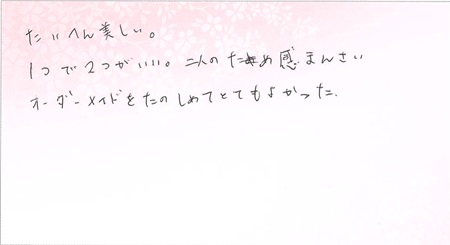 たいへん美しい。
1つで2つがいい。二人のため感まんさい
オーダーメイドをたのしめてとてもよかった。